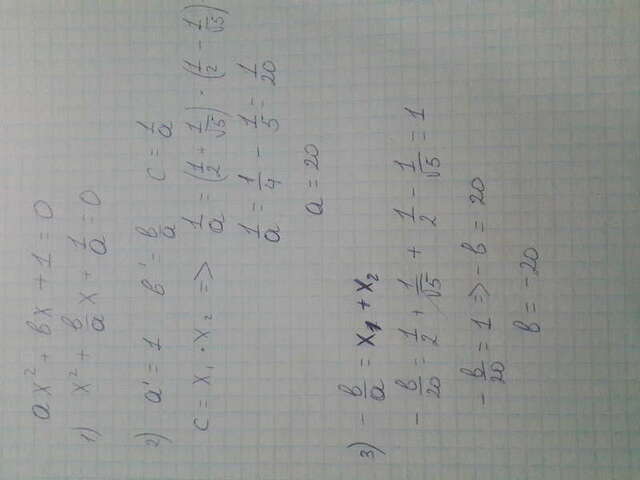 ax² + bx + 1 = 0
1) x² + b/a x + 1/a = 0
2) a' = 1 b' = b/a c = 1/a
c = x₁ · x₂ => 1/a = (1/2 + 1/√5) · (1/2 - 1/√5)
1/a = 1/4 - 1/5 = 1/20
a = 20
3) - b/a = x₁ + x₂
- b/20 = 1/2 + 1/√5 + 1/2 - 1/√5 = 1
- b/20 = 1 => - b = 20
b = -20